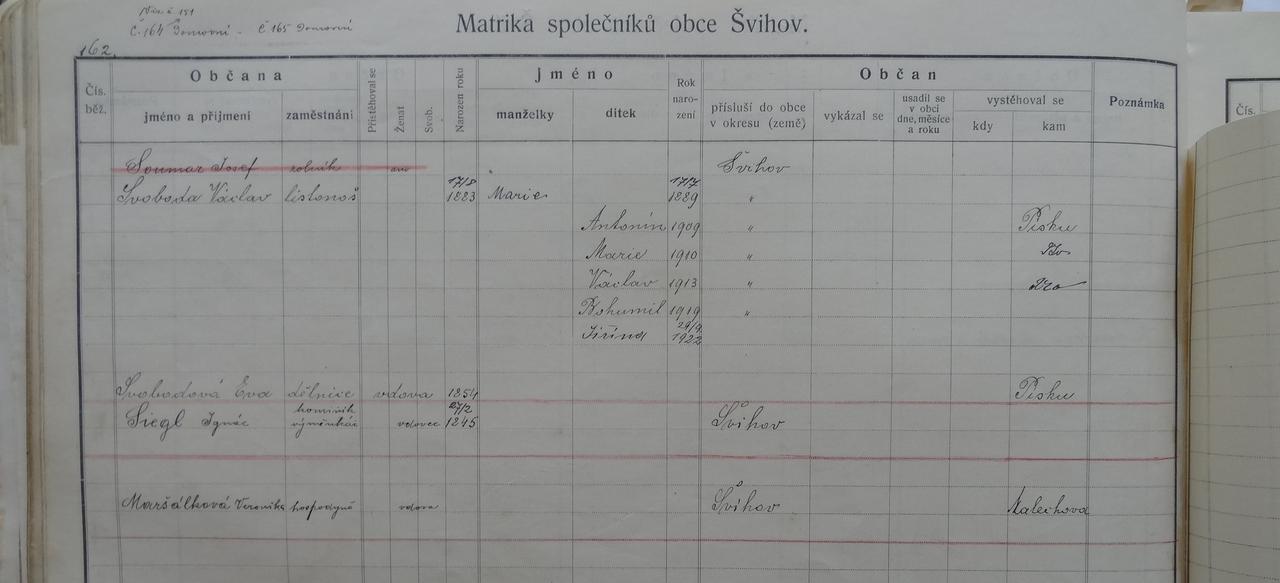 č 164 Domovní - č 165 Domovní
Matrika společníků obce Švihov.
162.
Čís. běž.
Občana
jméno a příjmení
zaměstnání
Přistěhoval se
Ženat
Svob.
Narozen roku
Jméno
manželky
dítek
Rok naro- zení
Občan
přísluší do obce v okresu (země)
vykázal se
usadil se v obci dne, měsíce a roku
vystěhoval se
kdy
kam
Poznámka
Čís.
Soumar Josef rolník ano Švihov
17/8 17/7
Svoboda Václav listonoš 1883 Marie 1889 "
Antonín 1909 " Písku
Marie 1910 "
Václav 1913 "
Bohumil 1919 "
Jiřina 1922
Svobodová Eva dělnice vdova 1854 Písku
27/2
Siegl Ignác výměnkář vdovec 1845 Švihov
Maršálková Veronika hospodyně vdova Švihov Malechova